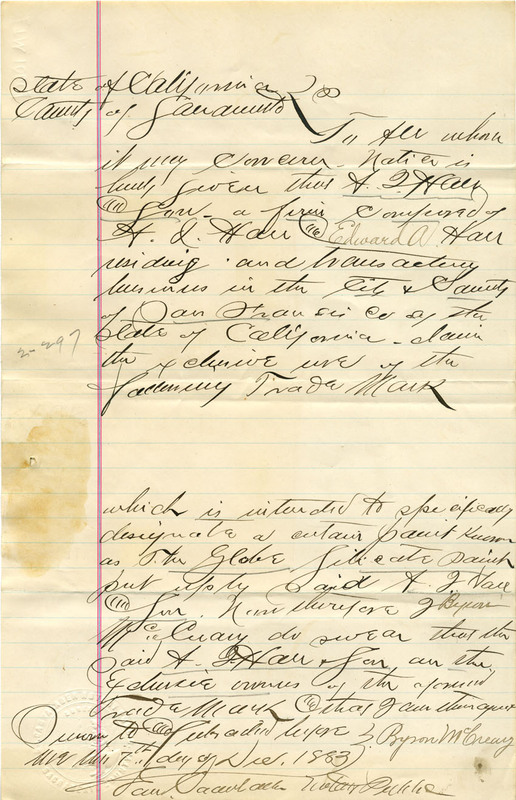 State of California
County of Sacramento } SS
To All whom
it may concern Notice is
hereby given that A. J. Harr
& Son a firm composed of
A. J. Harr & Edward A Harr
residing and transacting
business in the City & County
of San Francisco of the
State of California claim
the exclusive use of the
following Trade Mark
2-297
which is intended to specifically
designate a certain paint known
as The Globe Silicate paint
put up by said A. J. Harr
& Son Now therefore I Byron
McCreary do swear that the
said A. J. Harr & Son are the
exclusive owners of the aforesaid
Trade Mark & that I am their agent
Sworn to & Subscribed before } Byron McCreary
me this 7th day of Dec. 1883
Notary Public